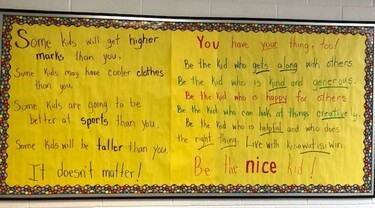 Some kids will get higher
marks than you,
Some kids may have cooler clothes
than you.
Some kids are going to be
better at sports than you.
Some kids will be taller than you
It doesn't matter!
You have your thing, too!
Be the kid who gets along with others
Be the kid who is kind and generous.
Be the kid who is happy for others
Be the kid who can look at things creatively.
Be the kid who is helpful and who does
the right thing. Live with
Be the nice kid!